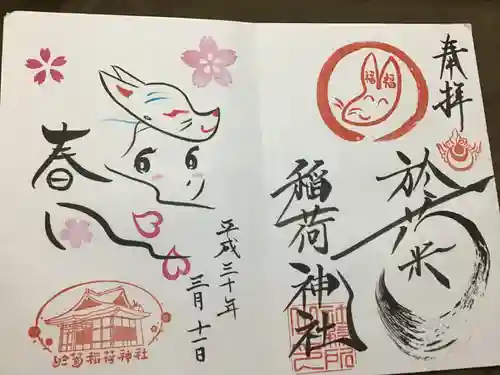 奉拝
於菊稲荷神社
福福
春
平成三十年
三月十一日
於菊稲荷神社